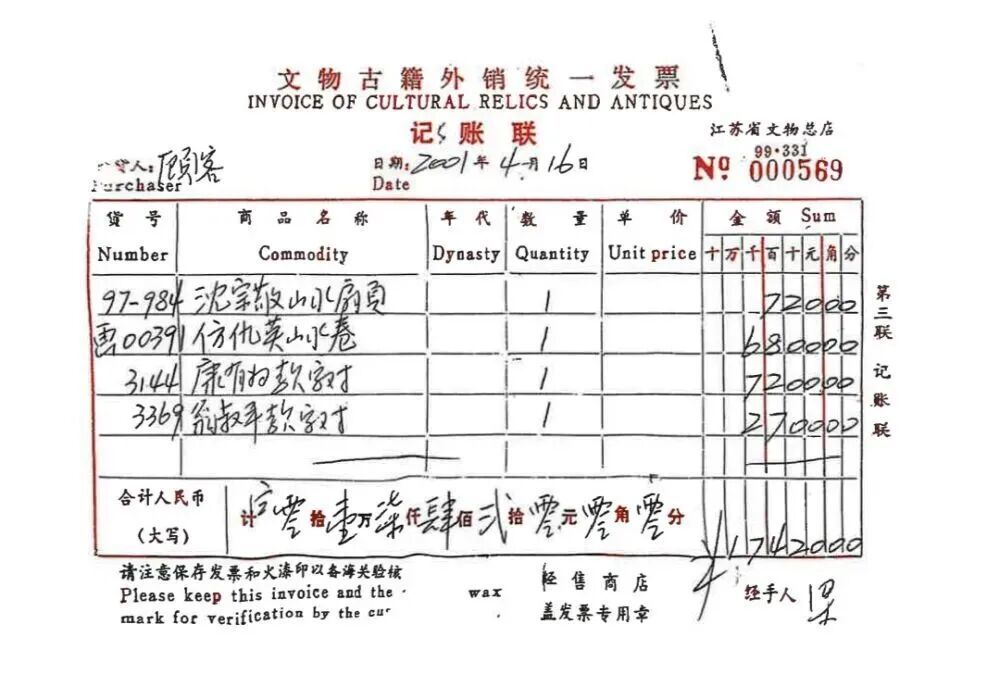 文物古籍外销统一发票
INVOICE OF CULTURAL RELICS AND ANTIQUES
记账联
江苏省文物总店
货人: 顾客 日期: 2001年4月16日 99·331
Purchaser Date Nº 000569
货号 商品名称 年代 数量 单价 金额 Sum
Number Commodity Dynasty Quantity Unit price 十万千百十元角分
97-984 沈宗敬山水扇頁 1 72000
画00391 仿仇英山水卷 1 680000
3144 康有为款字对 1 720000
3369 翁叔平款字对 1 270000
合计人民币(大写) 计零拾壹万柒仟肆佰弍拾零元零角零分 ¥1742000
第三联 记账联
请注意保存发票和火漆印以备海关验核 经售商店 经手人
Please keep this invoice and the wax
mark for verification by the 盖发票专用章